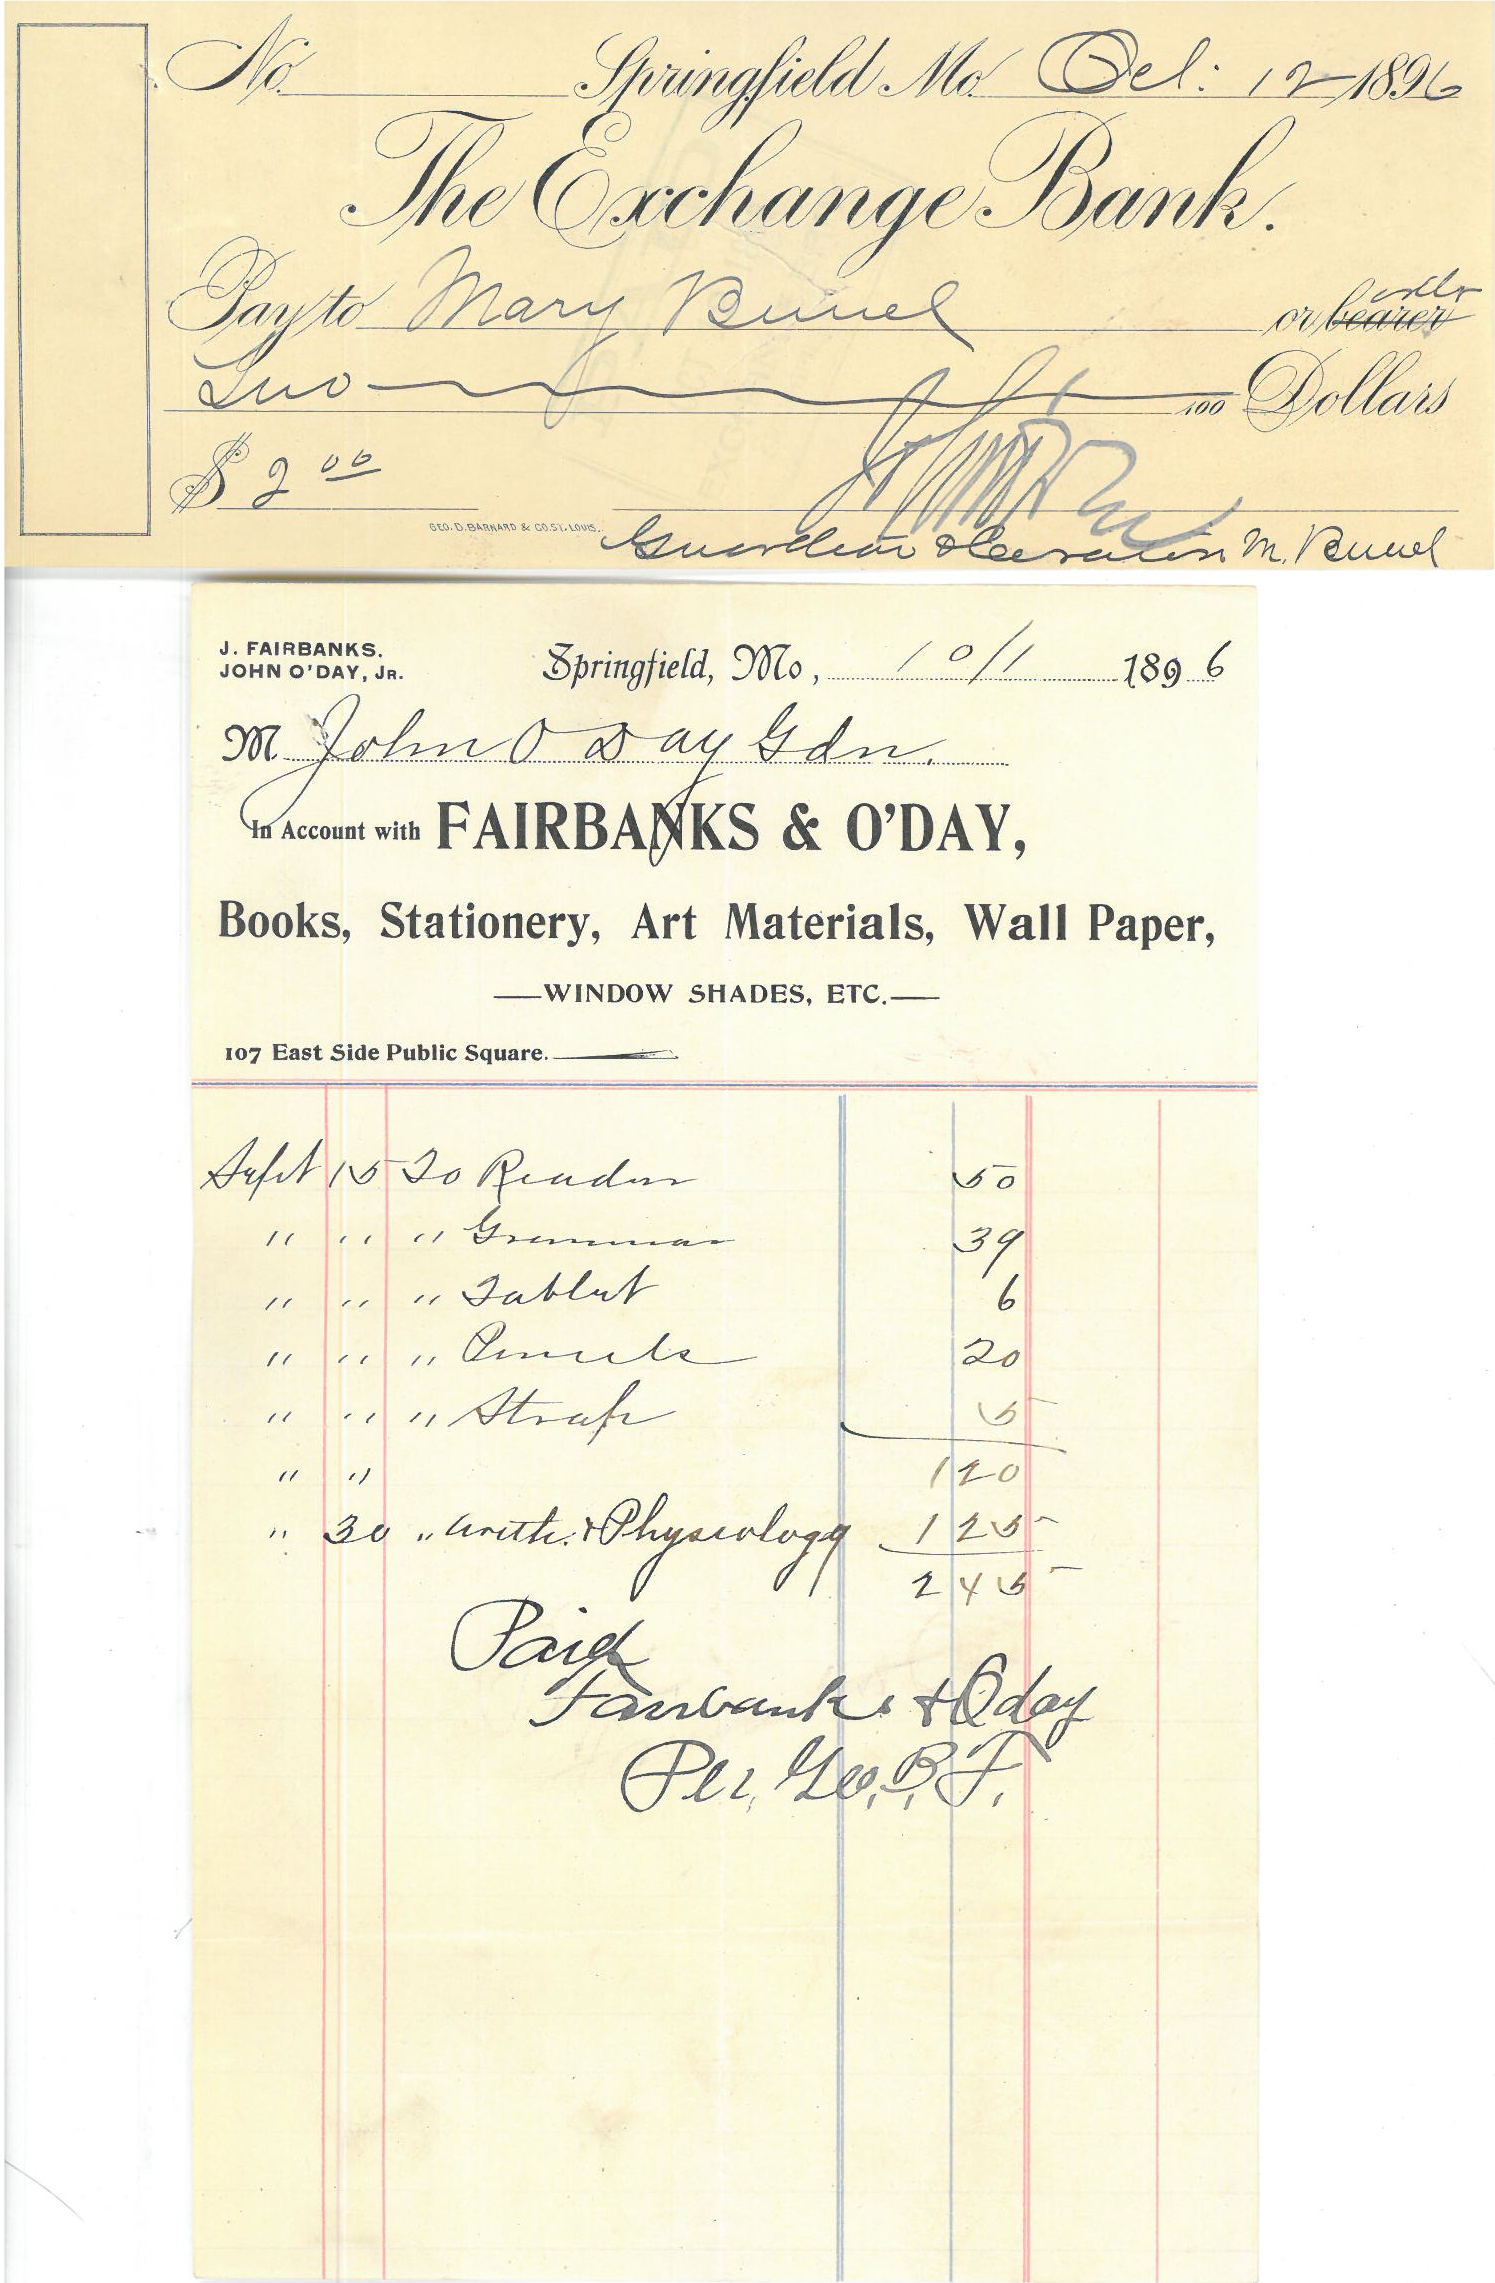 No. Springfield Mo. Oct: 12 1896
The Exchange Bank.
Pay to Mary Bunel or bearer order
Two 100 Dollars
$ 2 00
GEO. D. BARNARD & CO. ST. LOUIS.
Guardian & M. Bunel
J. FAIRBANKS.
JOHN O'DAY, JR.
Springfield, Mo, 10/1 1896
M John O Day Gdn.
In Account with FAIRBANKS & O'DAY,
Books, Stationery, Art Materials, Wall Paper,
WINDOW SHADES, ETC.
107 East Side Public Square.
Sept 15 To Reader 50
" " " Grammar 39
" " " Tablet 6
" " " Pencils 20
" " " Strap 5
" " 120
" 30 " Arith. & Physiology 125
245
Paid
Fairbanks & Oday
Per. Geo. B. F.